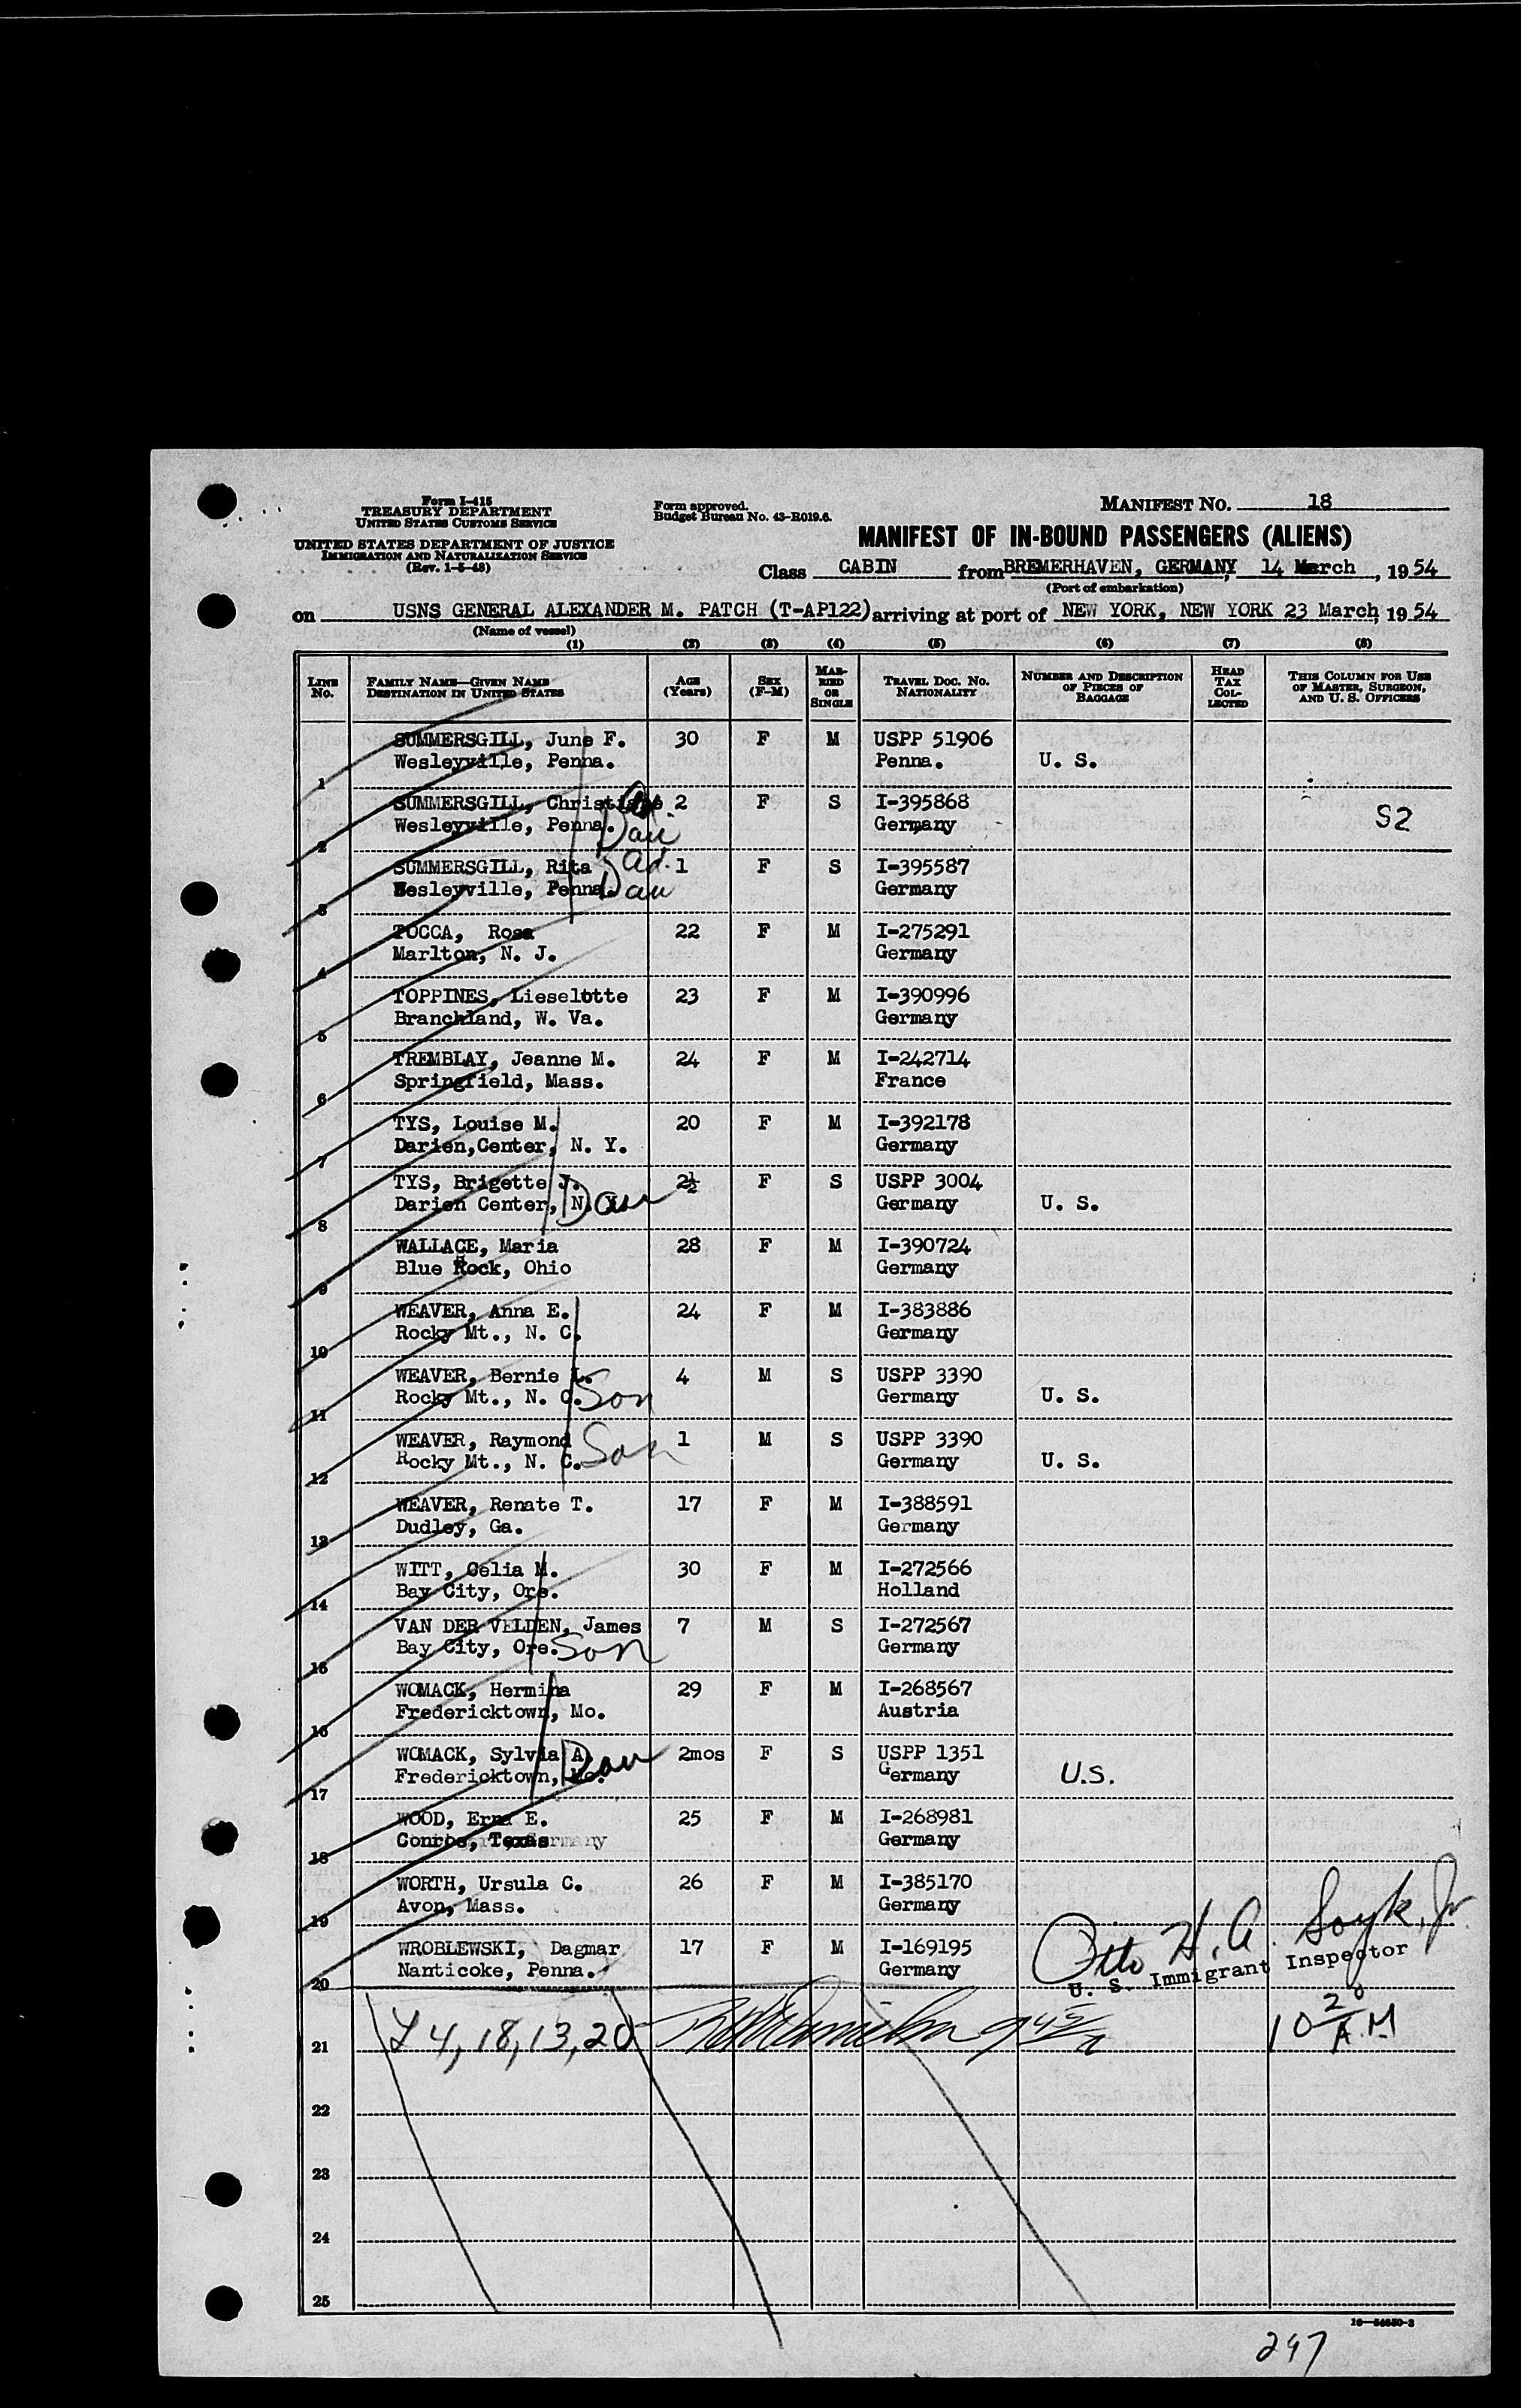 Form I-415
TREASURY DEPARTMENT
UNITED STATES CUSTOMS SERVICE
UNITED STATES DEPARTMENT OF JUSTICE
IMMIGRATION AND NATURALIZATION SERVICE
(Rev. 1-5-48)
Form approved.
Budget Bureau No. 43-R019.6.
MANIFEST NO. 18
MANIFEST OF IN-BOUND PASSENGERS (ALIENS)
Class CABIN from BREMERHAVEN, GERMANY, 14 March, 1954
(Port of embarkation)
on USNS GENERAL ALEXANDER M. PATCH (T-AP122) arriving at port of NEW YORK, NEW YORK 23 March, 1954
(Name of vessel)
(1) (2) (3) (4) (5) (6) (7) (8)
LINE NO. FAMILY NAME—GIVEN NAME DESTINATION IN UNITED STATES AGE (Years) SEX (F-M) MARRIED OR SINGLE TRAVEL DOC. NO. NATIONALITY NUMBER AND DESCRIPTION OF PIECES OF BAGGAGE HEAD TAX COLLECTED THIS COLUMN FOR USE OF MASTER, SURGEON, AND U. S. OFFICERS
SUMMERSGILL, June F. 30 F M USPP 51906
1 Wesleyville, Penna. Penna. U. S.
SUMMERSGILL, Christiane Ad. 2 F S I-395868
2 Wesleyville, Penna. Dau Germany S2
SUMMERSGILL, Rita Ad. 1 F S I-395587
3 Wesleyville, Penna. Dau Germany
TOCCA, Rosa 22 F M I-275291
4 Marlton, N. J. Germany
TOPPINES, Lieselotte 23 F M I-390996
5 Branchland, W. Va. Germany
TREMBLAY, Jeanne M. 24 F M I-242714
6 Springfield, Mass. France
TYS, Louise M. 20 F M I-392178
7 Darien,Center, N. Y. Germany
TYS, Brigette J. 2½ F S USPP 3004
8 Darien Center, N. Y. Dau Germany U. S.
WALLACE, Maria 28 F M I-390724
9 Blue Rock, Ohio Germany
WEAVER, Anna E. 24 F M I-383886
10 Rocky Mt., N. C. Germany
WEAVER, Bernie L. 4 M S USPP 3390
11 Rocky Mt., N. C. Son Germany U. S.
WEAVER, Raymond 1 M S USPP 3390
12 Rocky Mt., N. C. Son Germany U. S.
WEAVER, Renate T. 17 F M I-388591
13 Dudley, Ga. Germany
WITT, Celia M. 30 F M I-272566
14 Bay City, Ore. Holland
VAN DER VELDEN, James 7 M S I-272567
15 Bay City, Ore. Son Germany
WOMACK, Hermina 29 F M I-268567
16 Fredericktown, Mo. Austria
WOMACK, Sylvia A. 2mos F S USPP 1351
17 Fredericktown, Mo. Dau Germany U.S.
WOOD, Erna E. 25 F M I-268981
18 Conroe, Texas Germany
WORTH, Ursula C. 26 F M I-385170
19 Avon, Mass. Germany
WROBLEWSKI, Dagmar 17 F M I-169195
20 Nanticoke, Penna. Germany
Otto H. A. Soyk, Jr.
U. S. Immigrant Inspector
21 L 4, 18, 13, 20 10 20 A.M
22
23
24
25
297